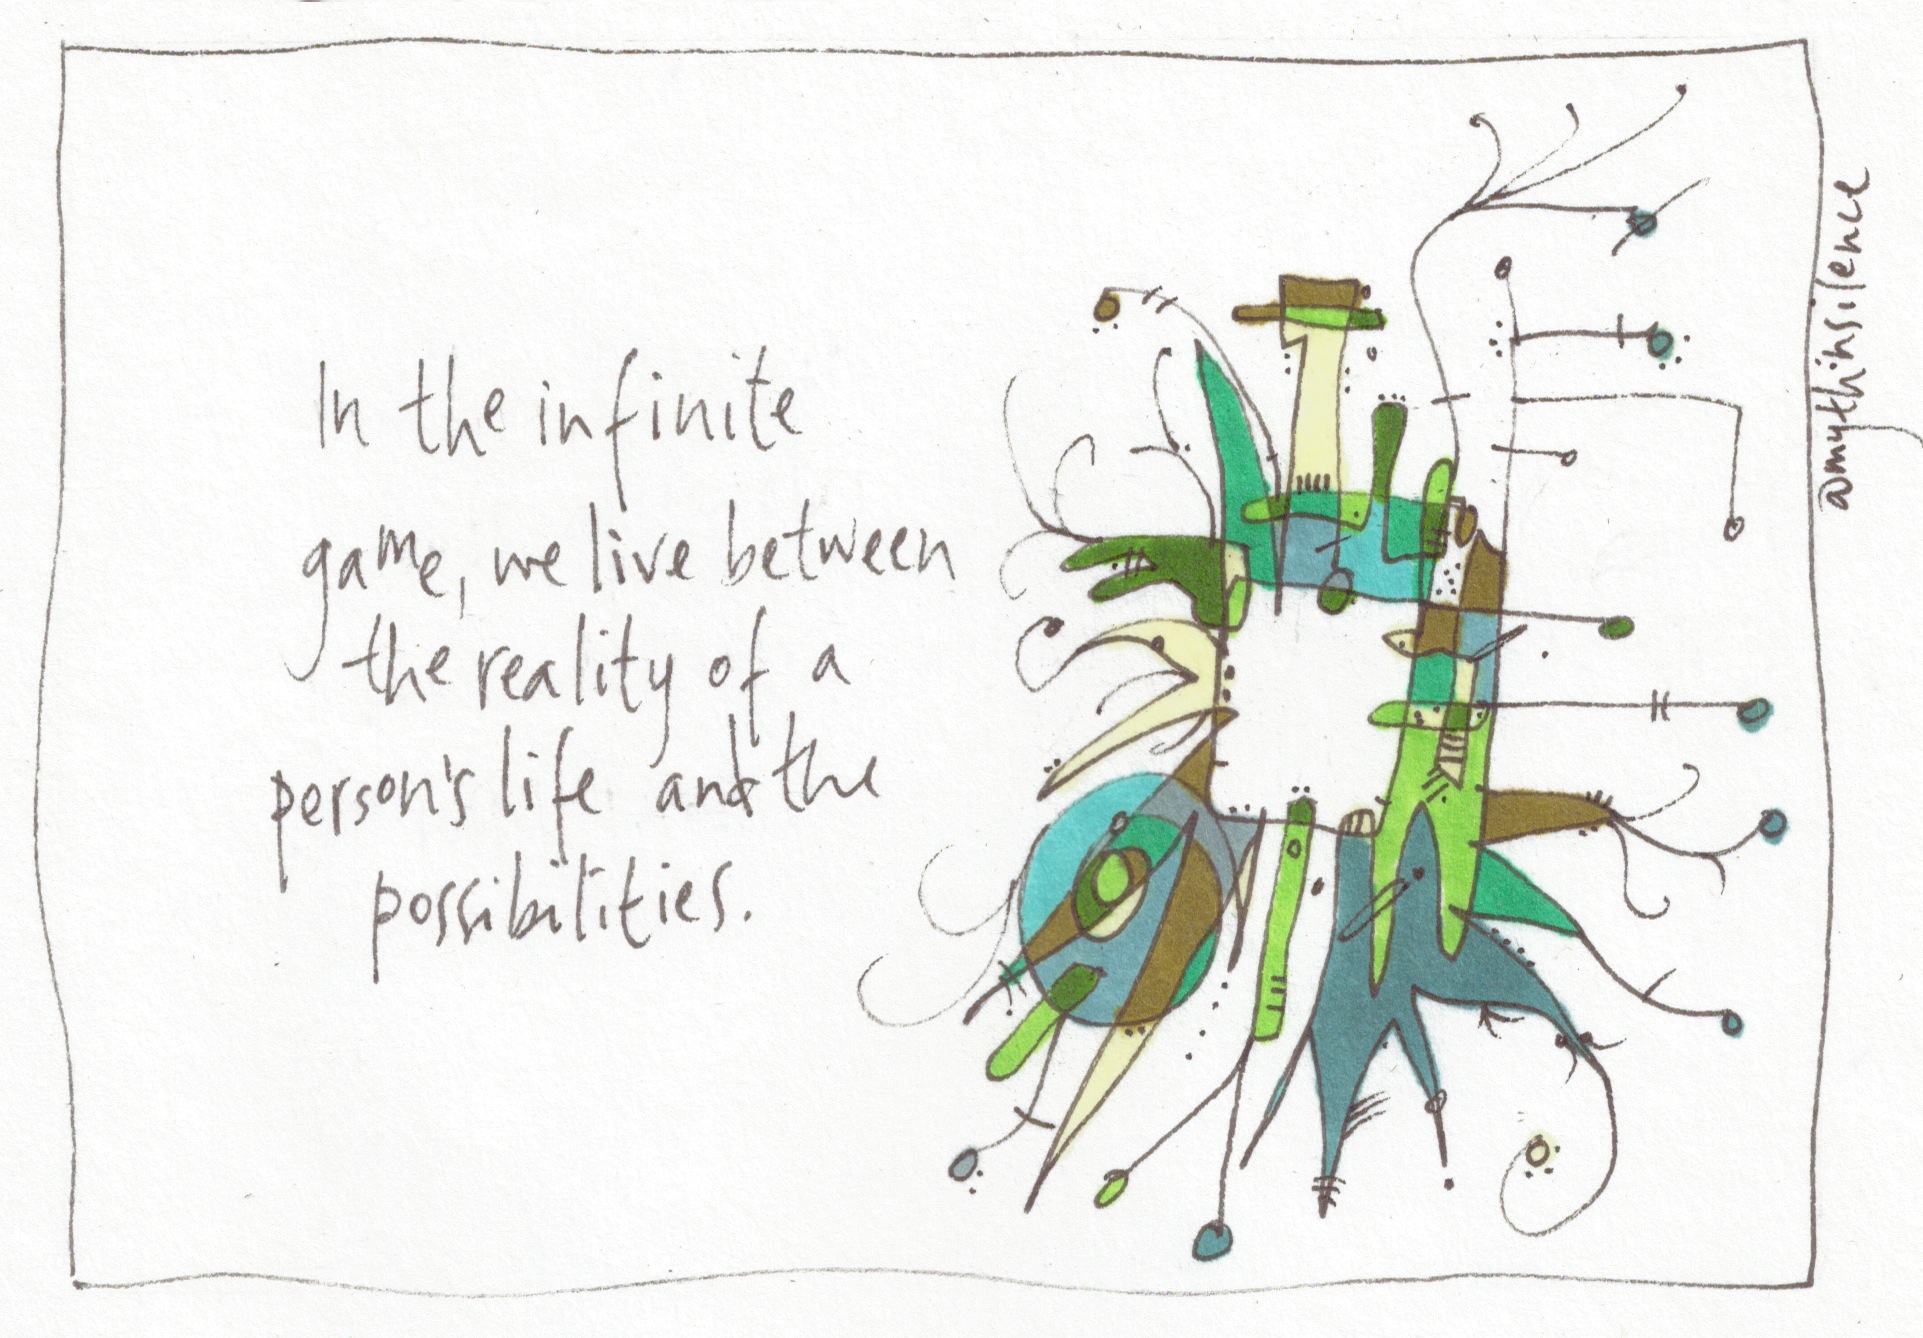 In the infinite
game, we live between
the reality of a
person's life and the
possibilities.
@mythinsilence